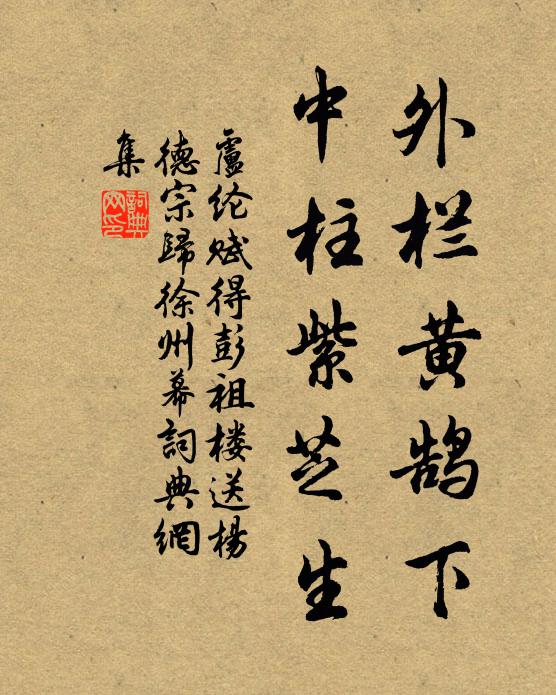 外栏黄鹄下
中柱紫芝生
盧纶赋得彭祖楼送楊
德宗歸徐州幕詞典網
集
詞典
网印